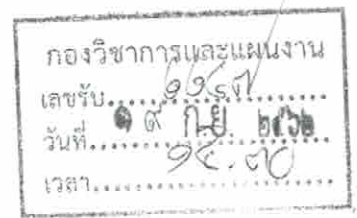 กองวิชาการและแผนงาน
เลขรับ
วันที่ ๑๙ ก.ย. ๒๕๖๒
เวลา ๑๔.๓๐